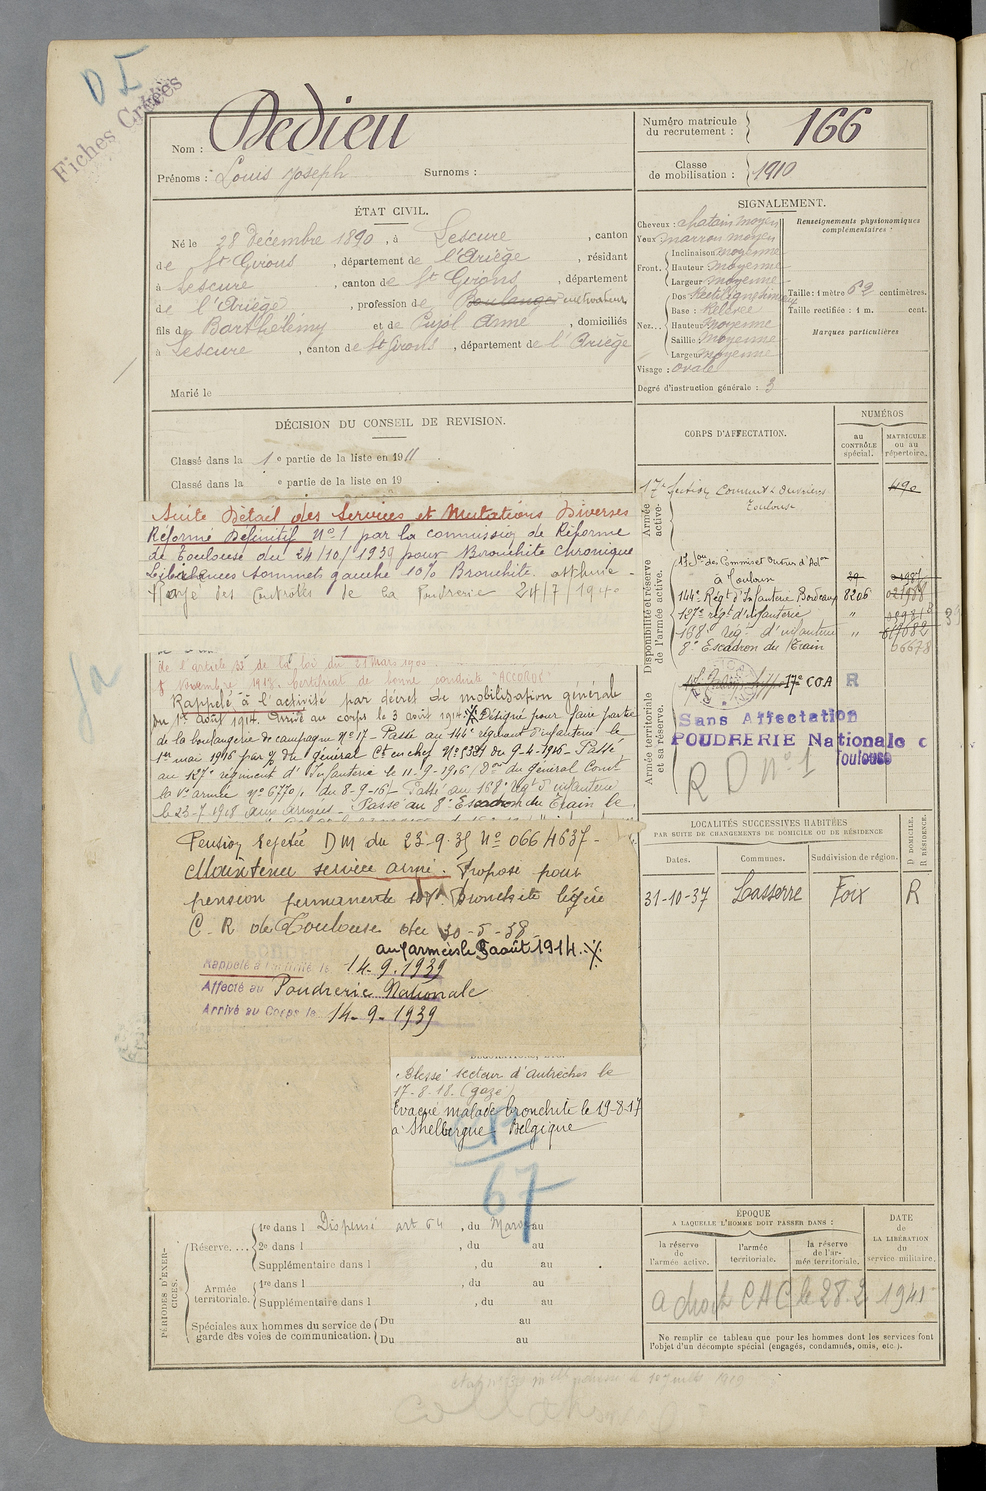 D I
Fiches Créées
Nom : Dedieu
Prénoms : Louis Joseph Surnoms :
Numéro matricule du recrutement : 166
Classe de mobilisation : 1910
ÉTAT CIVIL.
Né le 28 Décembre 1890, à Lescure, canton
de St Girons, département de l'Ariège, résidant
à Lescure, canton de St Girons, département
de l'Ariège, profession de Boulanger cultivateur
fils de Barthélémy et de Pujol Anne, domiciliés
à Lescure, canton de St Girons, département de l'Ariège
Marié le
SIGNALEMENT.
Cheveux : chatain moyen
Yeux marron moyen
Front. Inclinaison moyenne
Hauteur moyenne
Largeur moyenne
Nez... Dos Rectiligne
Base : Relevée
Hauteur moyenne
Saillie : Moyenne
Largeur moyenne
Visage : ovale
Degré d'instruction générale : 3
Renseignements physionomiques complémentaires :
Taille : 1 mètre 62 centimètres.
Taille rectifiée : 1 m. cent.
Marques particulières
DÉCISION DU CONSEIL DE REVISION.
Classé dans la 1e partie de la liste en 1911
Classé dans la e partie de la liste en 19
Suite Détail des Services et Mutations Diverses
Réforme Définitif No 1 par la commission de Réforme
de Toulouse du 24/10/1939 pour Bronchite chronique
sommet gauche 10% Bronchite asthme
des Controles de la Poudrerie 24/7/1940
de l'article 33 de la loi du 21 Mars 1900
8 Novembre 1913. Certificat de bonne conduite "ACCORDÉ"
Rappelé à l'activité par décret de mobilisation générale
du 1er août 1914. Arrivé au corps le 3 août 1914. Désigné pour faire partie
de la boulangerie de campagne No 17 - Passé au 144e régiment d'infanterie le
1er mai 1916 par du général Ct en chef No du 9-4-1916 - Passé
au 127e régiment d'Infanterie le 11-9-1916 / Don du général Comt
la Ve armée No 6770/1 du 8-9-16/ Passé au 168e régt d'infanterie
le 23-7-1918 aux armées - Passé au 8e Escadron du Train le
Pension rejetée DM du 23.9.35 No 0664637-
Maintenu service armé. Proposé pour
pension permanente Bronchite légère
C. R. de Toulouse du 30-5-38
aux armées le 5 août 1914
Rappelé à l'activité le 14-9-1939
Affecté au Poudrerie Nationale
Arrivé au Corps le 14-9-1939
Blessé secteur d'Autrèches le
17-8-18 (gazé)
Evacué malade bronchite le 19-8-17
à Shelbergue Belgique
67
CORPS D'AFFECTATION.
NUMÉROS
au CONTRÔLE spécial.
MATRICULE ou au répertoire.
Armée active.
17e Section Commis & Ouvriers
Toulouse
490
Disponibilité et réserve de l'armée active.
17 Son des Commis et Ouvriers d'Adon
à Toulouse
144e Régt d'Infanterie Bordeaux 8206
127e régt d'infanterie "
168e régt d'infanterie "
8e Escadron du Train 66678
Armée territoriale et sa réserve.
17e COA R
Sans Affectation
POUDRERIE Nationale
Toulouse
R D No 1
LOCALITÉS SUCCESSIVES HABITÉES
PAR SUITE DE CHANGEMENTS DE DOMICILE OU DE RÉSIDENCE
Dates. Communes. Subdivision de région. D DOMICILE. R RÉSIDENCE.
31-10-37 Lasserre Foix R
PÉRIODES D'EXERCICES.
Réserve.... 1re dans l Dispensé art 64, du Maroc au
2e dans l , du au
Supplémentaire dans l , du au
Armée territoriale. 1re dans l , du au
Supplémentaire dans l , du au
Spéciales aux hommes du service de garde des voies de communication. Du au
Du au
ÉPOQUE
A LAQUELLE L'HOMME DOIT PASSER DANS :
la réserve de l'armée active.
l'armée territoriale.
la réserve de l'armée territoriale.
DATE de LA LIBÉRATION du service militaire.
a droit CAC le 28.2 1941
Ne remplir ce tableau que pour les hommes dont les services font
l'objet d'un décompte spécial (engagés, condamnés, omis, etc.).